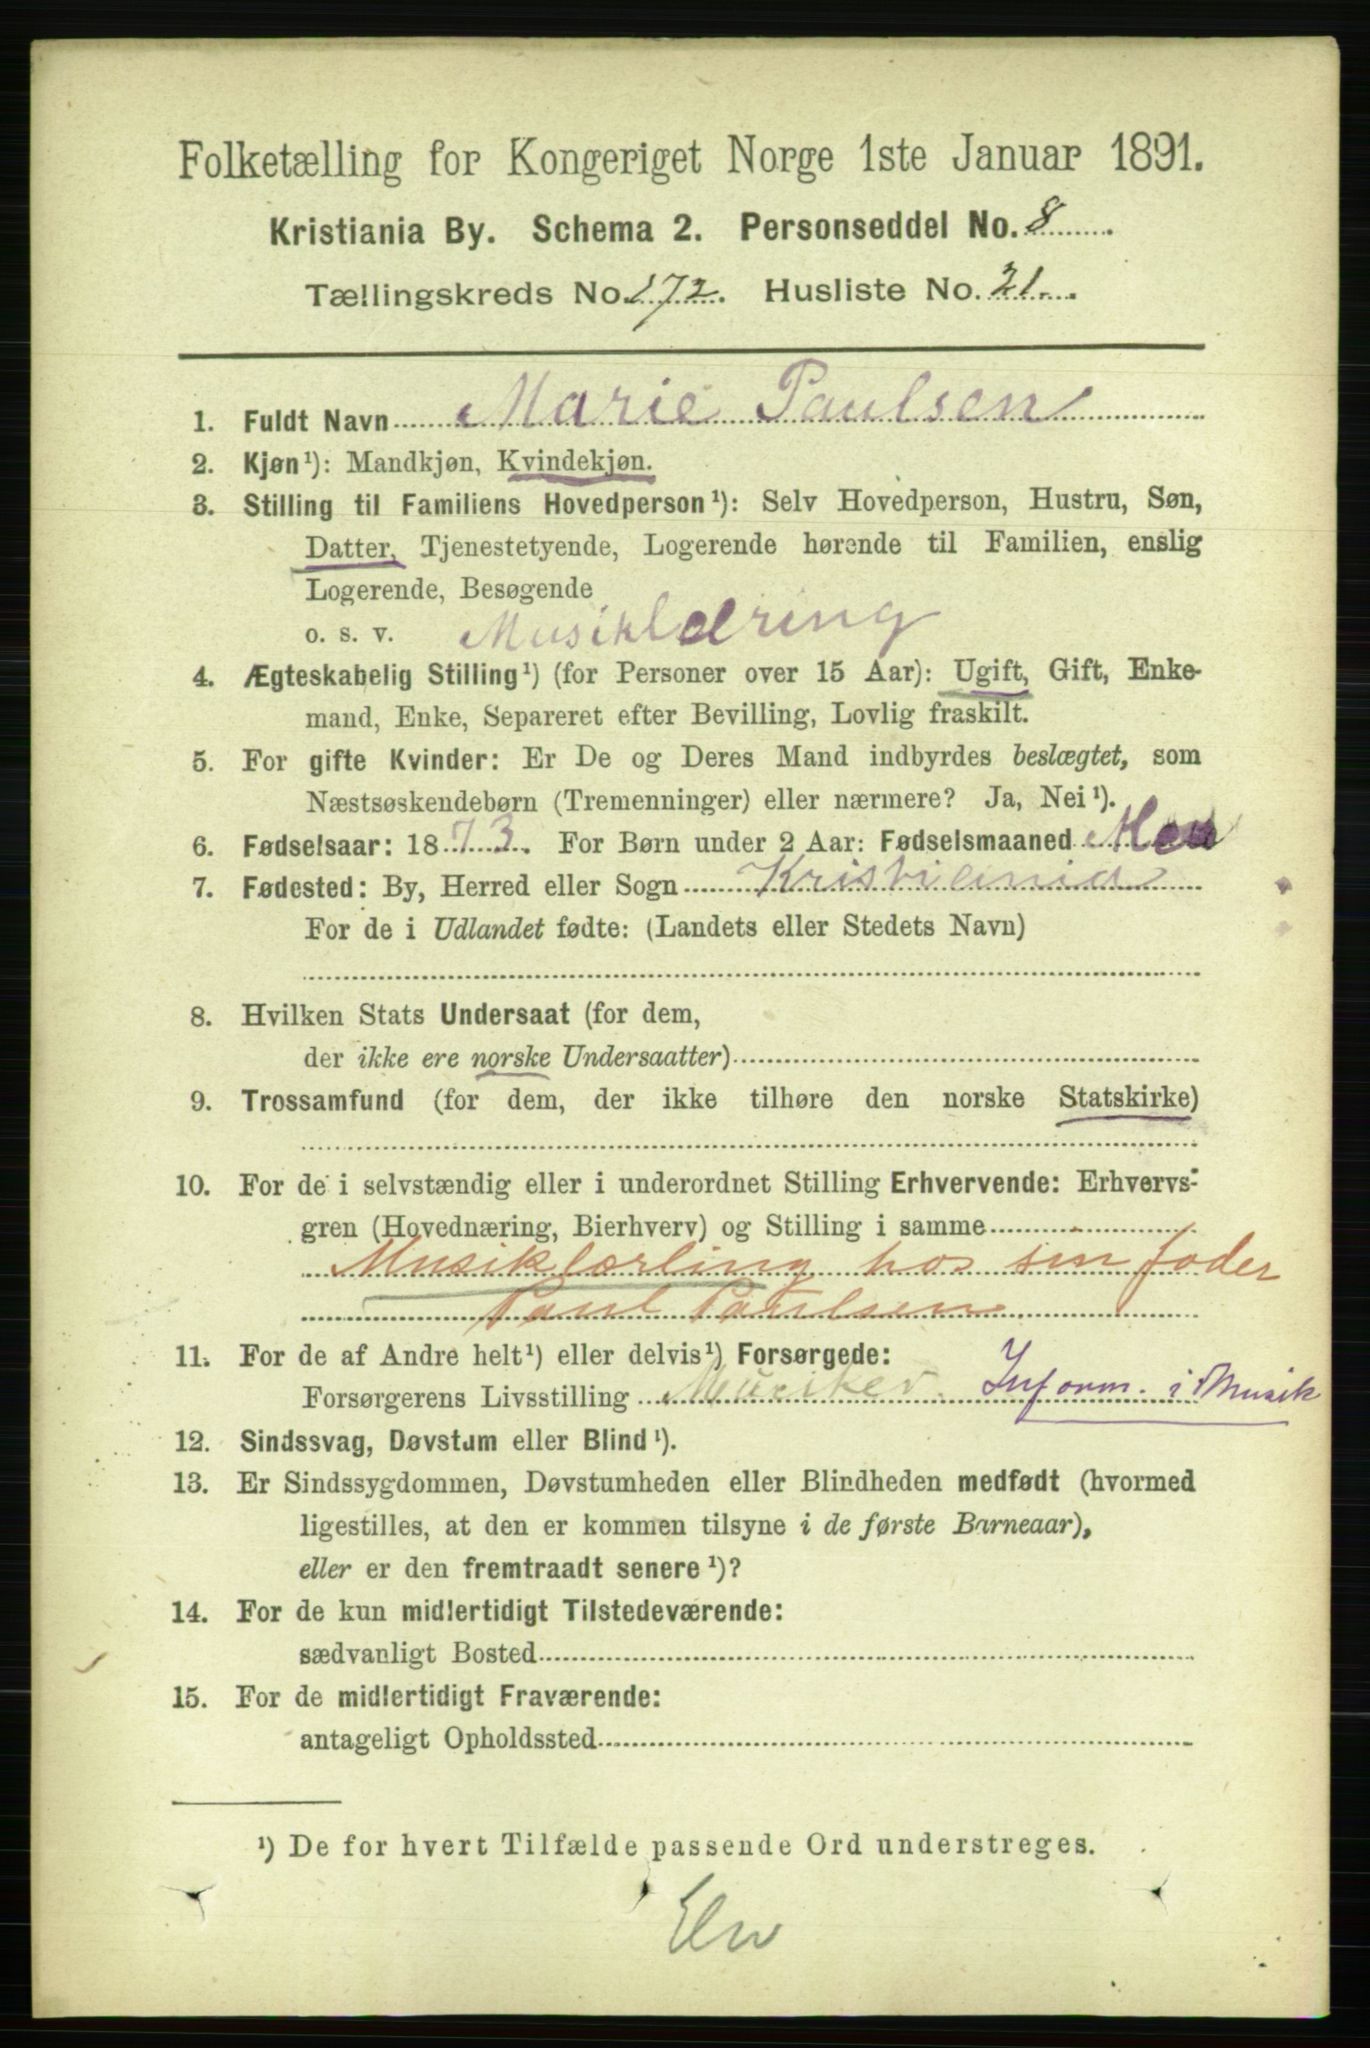 Folketælling for Kongeriget Norge 1ste Januar 1891.
Kristiania By. Schema 2. Personseddel No. 8
Tællingskreds No. 172. Husliste No. 21.
1. Fuldt Navn Marie Paulsen
2. Kjøn¹): Mandkjøn, Kvindekjøn.
3. Stilling til Familiens Hovedperson¹): Selv Hovedperson, Hustru, Søn,
Datter, Tjenestetyende, Logerende hørende til Familien, enslig
Logerende, Besøgende
o. s. v. Musiklæring
4. Ægteskabelig Stilling¹) (for Personer over 15 Aar): Ugift, Gift, Enke-
mand, Enke, Separeret efter Bevilling, Lovlig fraskilt.
5. For gifte Kvinder: Er De og Deres Mand indbyrdes beslægtet, som
Næstsøskendebørn (Tremenninger) eller nærmere? Ja, Nei¹).
6. Fødselsaar: 1873. For Børn under 2 Aar: Fødselsmaaned
7. Fødested: By, Herred eller Sogn Kristiania
For de i Udlandet fødte: (Landets eller Stedets Navn)
8. Hvilken Stats Undersaat (for dem,
der ikke ere norske Undersaatter)
9. Trossamfund (for dem, der ikke tilhøre den norske Statskirke)
10. For de i selvstændig eller i underordnet Stilling Erhvervende: Erhvervs-
gren (Hovednæring, Bierhverv) og Stilling i samme
Musiklærling hos sin fader
Paul Paulsen
11. For de af Andre helt¹) eller delvis¹) Forsørgede:
Forsørgerens Livsstilling Musiker. Inform. i Musik
12. Sindssvag, Døvstum eller Blind¹).
13. Er Sindssygdommen, Døvstumheden eller Blindheden medfødt (hvormed
ligestilles, at den er kommen tilsyne i de første Barneaar),
eller er den fremtraadt senere¹)?
14. For de kun midlertidigt Tilstedeværende:
sædvanligt Bosted
15. For de midlertidigt Fraværende:
antageligt Opholdssted
¹) De for hvert Tilfælde passende Ord understreges.